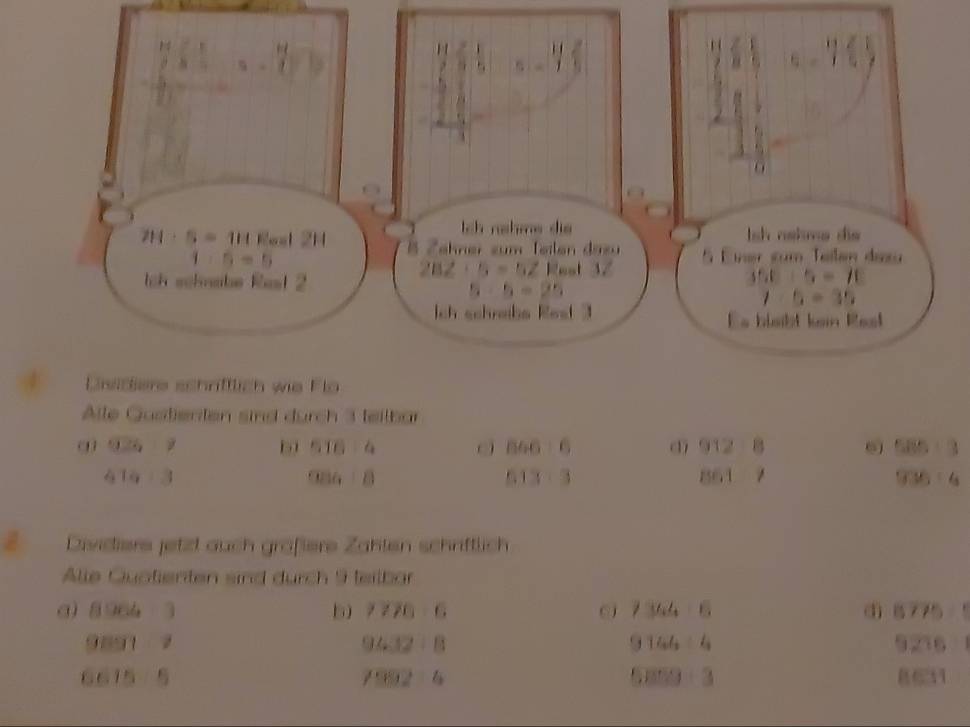 H Z E
7 8 5 : 5 = 1
H Z E
H Z
7 8 5 : 5 = 1 5
H Z E
H Z E
7 8 5 : 5 = 1 5 7
7H : 5 = 1H Rest 2H
1 · 5 = 5
Ich schreibe Rest 2
Ich nehme die
8 Zehner zum Teilen dazu
28Z : 5 = 5Z Rest 3Z
5 · 5 = 25
Ich schreibe Rest 3
Ich nehme die
5 Einer zum Teilen dazu
35E : 5 = 7E
7 · 5 = 35
Es bleibt kein Rest
Dividiere schriftlich wie Flo
Alle Quotienten sind durch 3 teilbar.
a) 924 : 7 b) 516 : 4 c) 846 : 6 d) 912 : 8 e) 585 : 3
414 : 3 984 : 8 513 : 3 861 : 7 936 : 4
2 Dividiere jetzt auch größere Zahlen schriftlich.
Alle Quotienten sind durch 9 teilbar
a) 8964 : 3 b) 7776 : 6 c) 7344 : 6 d) 8775 :
9891 : 7 9432 : 8 9144 : 4 9216 :
6615 : 5 7992 : 4 5859 : 3 8631 :